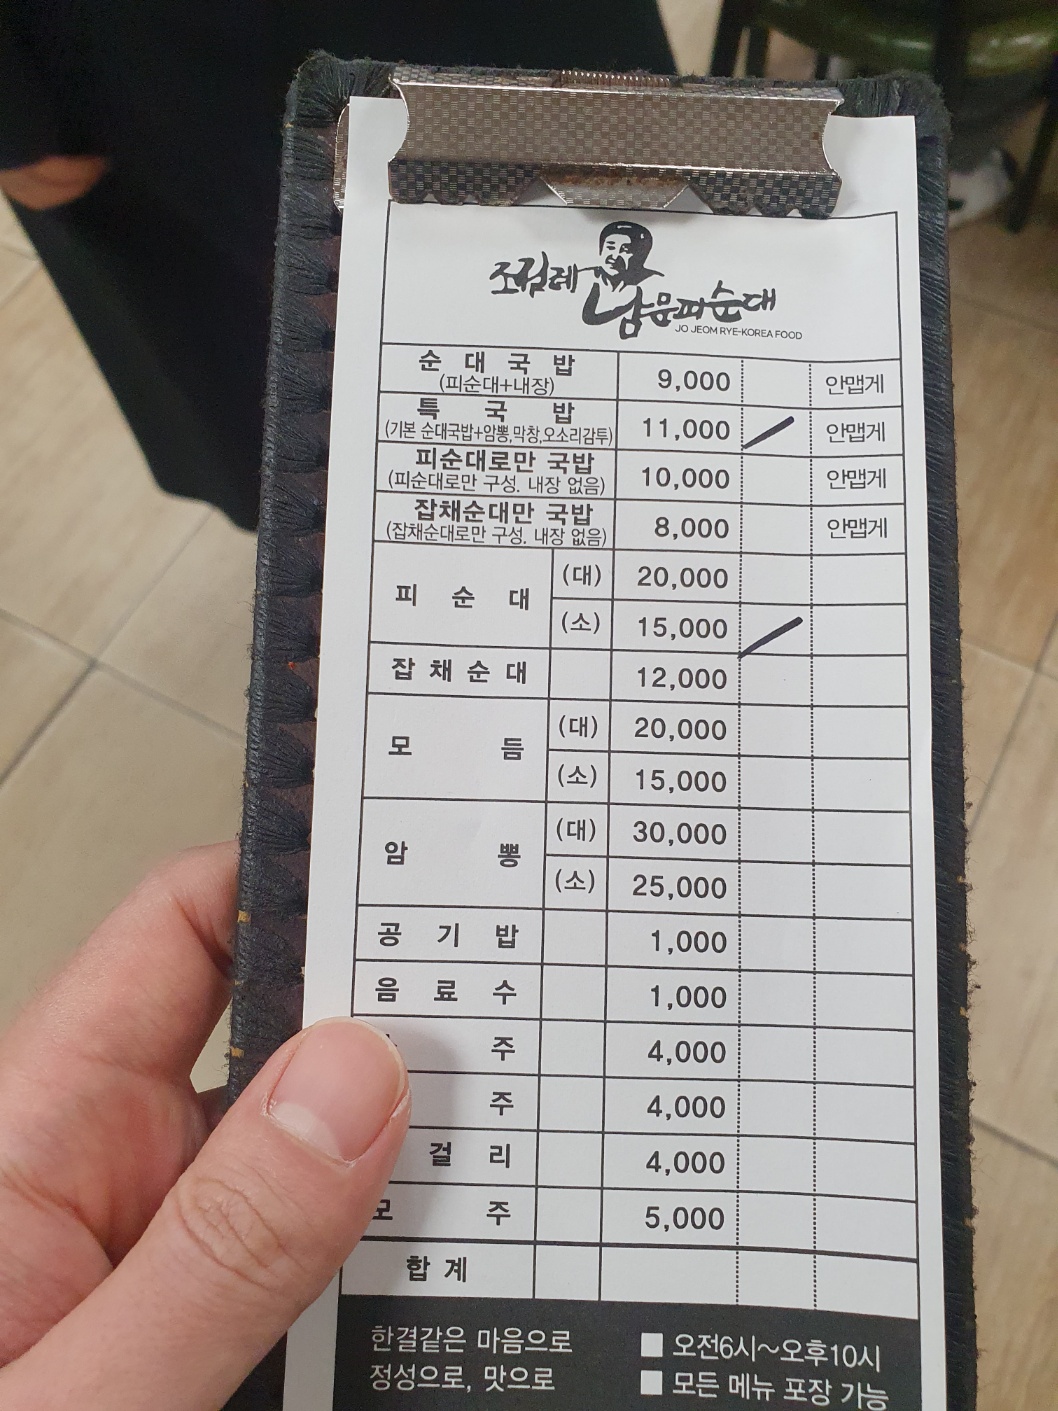 조점례
남문피순대
JO JEOM RYE-KOREA FOOD
순대국밥 9,000 안맵게
(피순대+내장)
특국밥 11,000 안맵게
(기본 순대국밥+암뽕,막창,오소리감투)
피순대로만 국밥 10,000 안맵게
(피순대로만 구성. 내장 없음)
잡채순대만 국밥 8,000 안맵게
(잡채순대로만 구성. 내장 없음)
피순대 (대) 20,000
(소) 15,000
잡채순대 12,000
모듬 (대) 20,000
(소) 15,000
암뽕 (대) 30,000
(소) 25,000
공기밥 1,000
음료수 1,000
주 4,000
주 4,000
걸리 4,000
모주 5,000
합계
한결같은 마음으로
정성으로, 맛으로
오전6시~오후10시
모든 메뉴 포장 가능